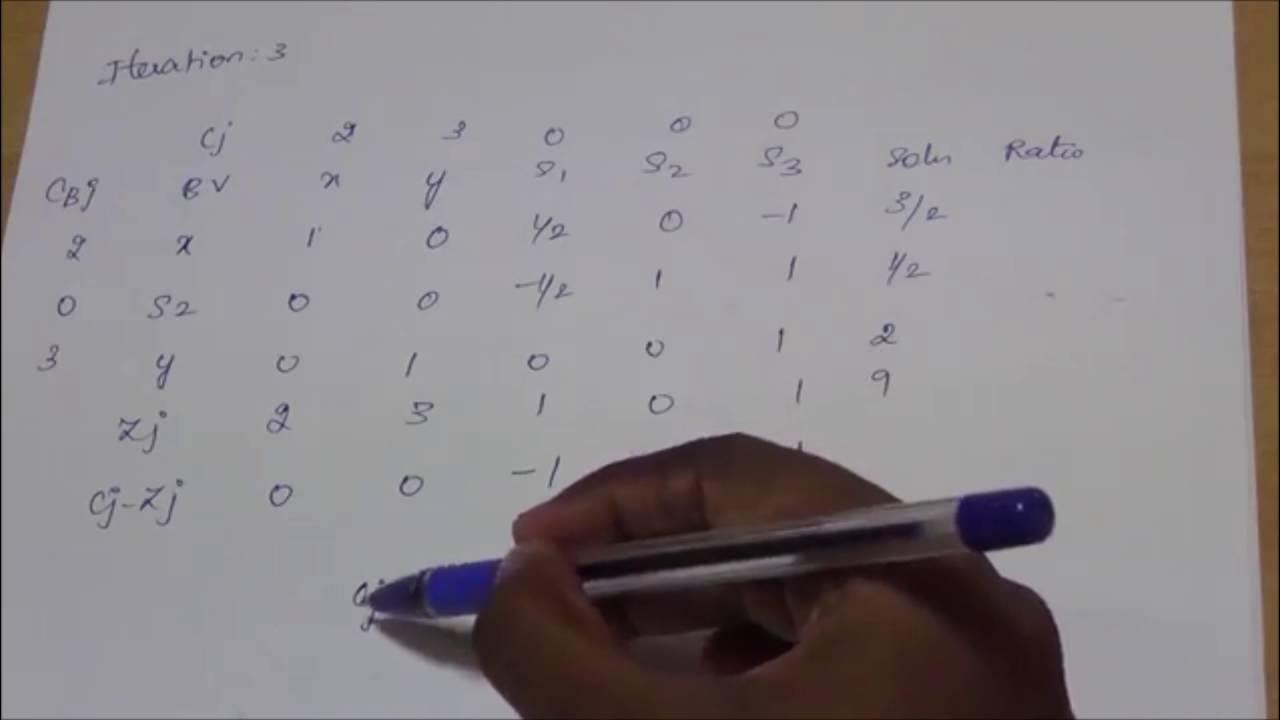 Iteration: 3
Cj 2 3 0 0 0
CBj BV x y S1 S2 S3 Soln Ratio
2 x 1 0 1/2 0 -1 3/2
0 S2 0 0 -1/2 1 1 1/2
3 y 0 1 0 0 1 2
Zj 2 3 1 0 1 9
Cj-Zj 0 0 -1